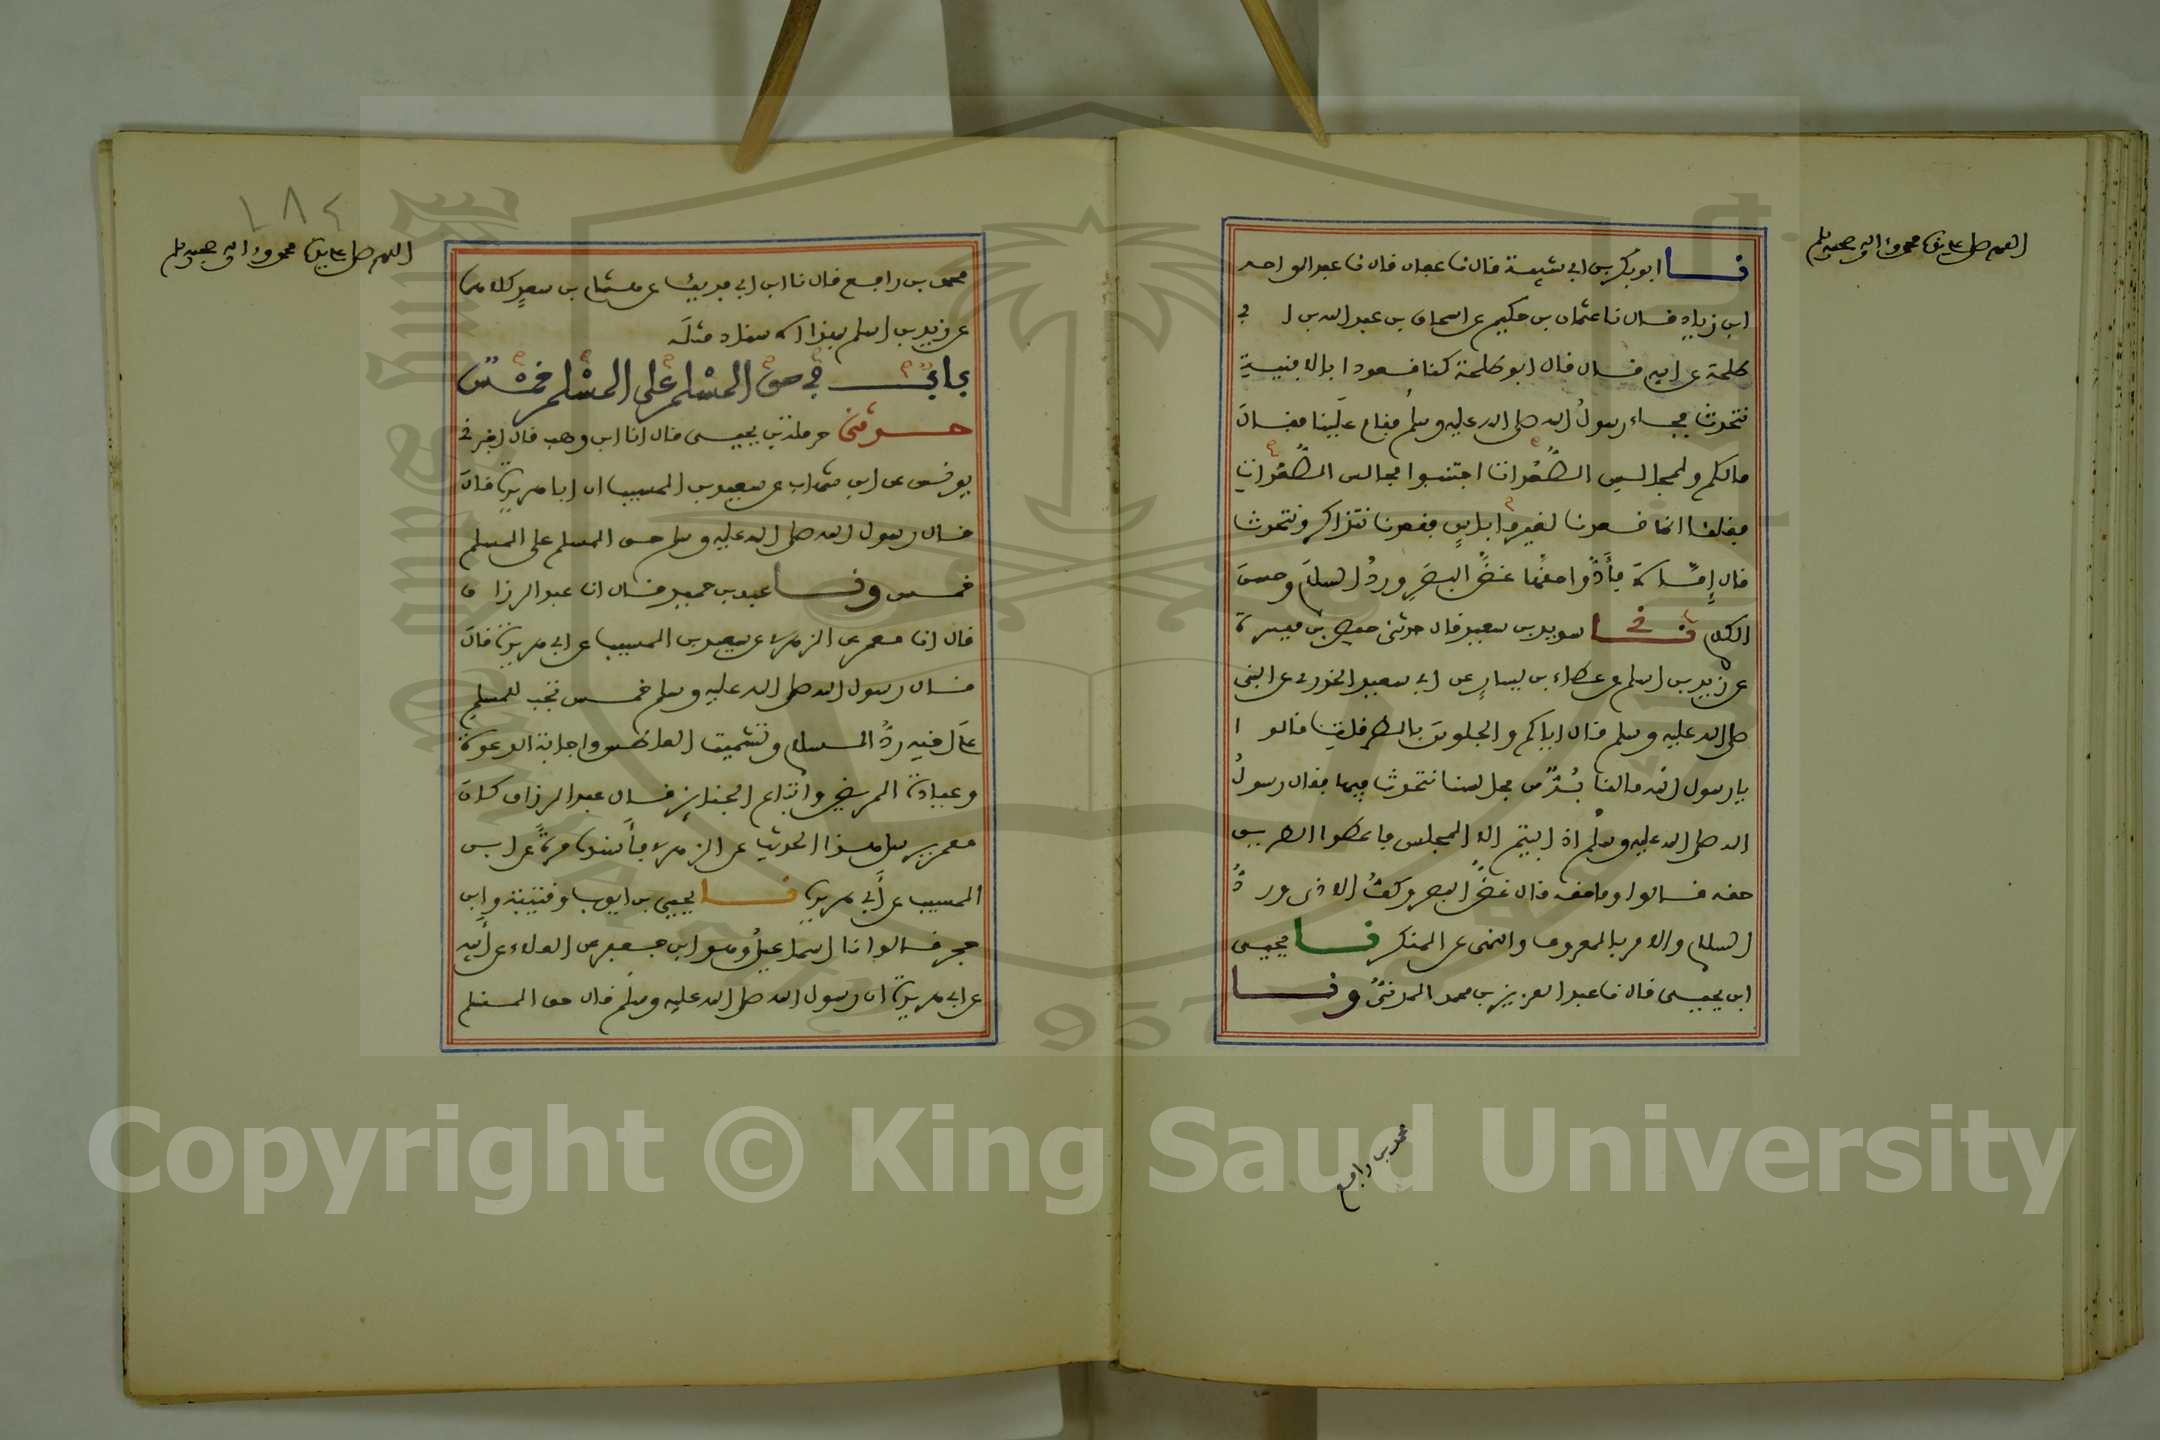 اللهم صل على سيدنا محمد وءاله وصحبه وسلم
نا ابو بكر بن ابي شيبة قال نا عفان قال نا عبد الواحد
ابن زياد قال نا عثمان بن حكيم عن اسحاق بن عبد الله بن ا بي
طلحة عن ابيه قال قال ابو طلحة كنا قعودا بالافنية
نتحدث فجاء رسول الله صلى الله عليه وسلم فقام علينا فقال
مالكم ولمجالس الصعدات اجتنبوا مجالس الصعدات
فقلنا انما قعدنا لغير ما باس فقعدنا نتذاكر ونتحدث
قال إمّا لا فأدّوا حقها غضّ البصر وردّ السلام وحسن
الكلام نا سويد بن سعيد قال حدثني حفص بن ميسرة
عن زيد بن اسلم عن عطاء بن يسار عن ابي سعيد الخدري عن النبي
صلى الله عليه وسلم قال اياكم والجلوس بالطرقات قالو ا
يا رسول الله ما لنا بُدّ من مجالسنا نتحدث فيها فقال رسول
الله صلى الله عليه وسلم اذا ابيتم الا المجلس فاعطوا الطريق
حقه قالوا وما حقه قال غضّ البصر وكفّ الاذى ور دّ
السلام والامر بالمعروف والنهي عن المنكر نا يحيى
ابن يحيى قال نا عبد العزيز بن محمد المدني ونا
محمد بن رافع
اللهم صل على سيدنا محمد وءاله وصحبه وسلم
١٨٤
محمد بن رافع قال نا ابن ابي فديك عن هشام بن سعد كلاهما
عن زيد بن اسلم بهذا الاسناد مثله
باب في حق المسلم على المسلم خمس
حدثني حرملة بن يحيى قال انا ابن وهب قال اخبرني
يونس عن ابن شهاب عن سعيد بن المسيب ان ابا هريرة قال
قال رسول الله صلى الله عليه وسلم حق المسلم على المسلم
خمس ونا عبد بن حميد قال انا عبد الرزا ق
قال انا معمر عن الزهري عن سعيد بن المسيب عن ابي هريرة قال
قال رسول الله صلى الله عليه وسلم خمس تجب للمسلم
على اخيه ردّ السلام وتشميت العاطس واجابة الدعوة
وعيادة المريض واتباع الجنايز قال عبد الرزاق كان
معمر يرسل هذا الحديث عن الزهري فأسنده مرةً عن ابن
المسيب عن أبي هريرة نا يحيى بن ايوب وقتيبة وابن
حجر قالوا نا اسماعيل وهو ابن جعفر عن العلاء عن أبيه
عن ابي هريرة ان رسول الله صلى الله عليه وسلم قال حق المسلم
Copyright © King Saud University